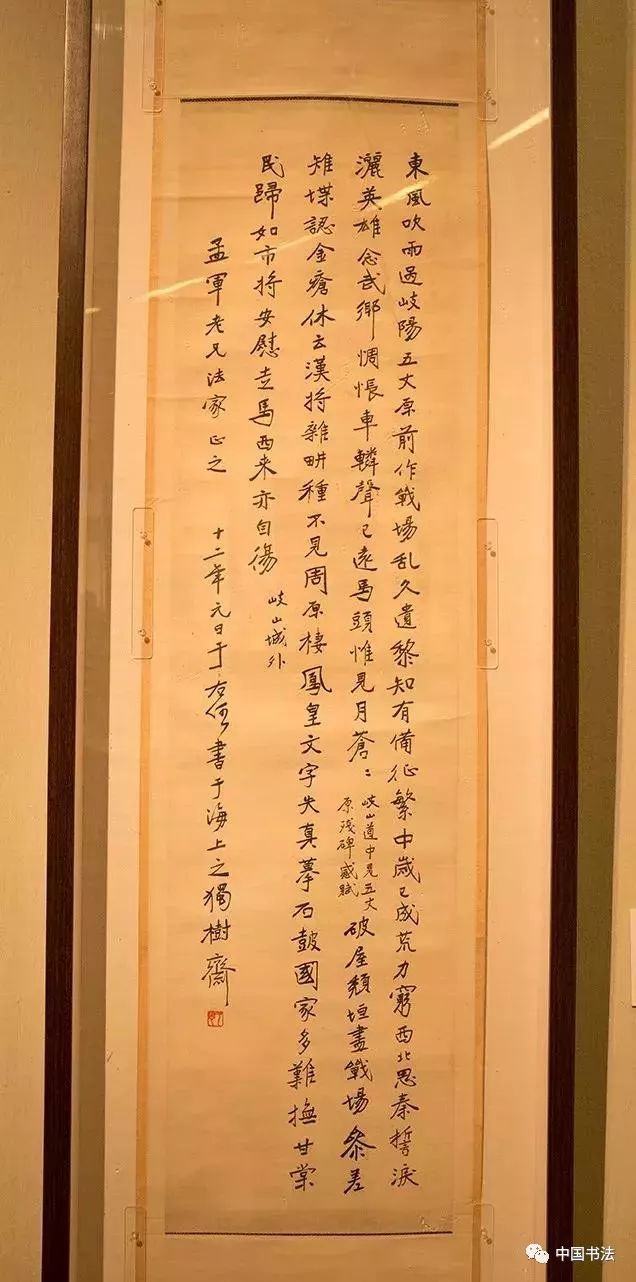 東風吹雨過岐陽五丈原前作戰場乱久遺黎知有備征繁中歲已成荒力窮西北思秦誓淚
灑英雄念武鄉惆悵車轔聲已遠馬頭惟見月蒼〻
岐山道中見五丈
原殘碑感賦
破屋頹垣盡戰場參差
雉堞認金瘡休云漢將雜畊種不見周原棲鳳皇文字失真摹石鼓國家多難撫甘棠
民歸如市将安慰走馬西来亦自傷
岐山城外
孟軍老兄法家正之
十二年元日于右任書于海上之獨樹齋
中国书法